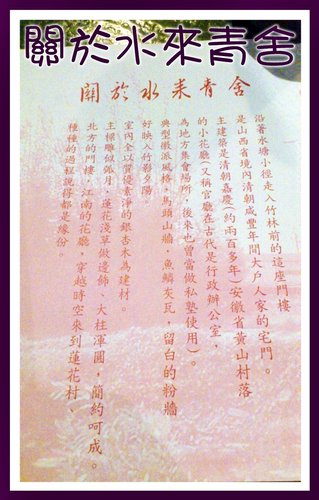 關於水來青舍
關於水來青舍
沿著水塘小徑走入竹林前的這座門樓
是山西省境內清朝咸豐年間大戶人家的宅門。
主建築是清朝嘉慶(約兩百多年)安徽省黃山村落
的小花廳(又稱官廳在古代是行政辦公室,
為地方集會場所,後來也曾當做私塾使用)。
典型徽派風格,馬頭山牆,魚鱗灰瓦,留白的粉牆
好映入竹影夕陽
室內全以質優素淨的銀杏木為建材。
主樑雕似銀月,蓮花淺草做邊飾、大柱渾圓,簡約呵成。
北方的門樓,江南的花廳,穿越時空來到蓮花村、
種種的過程說得都是緣份。